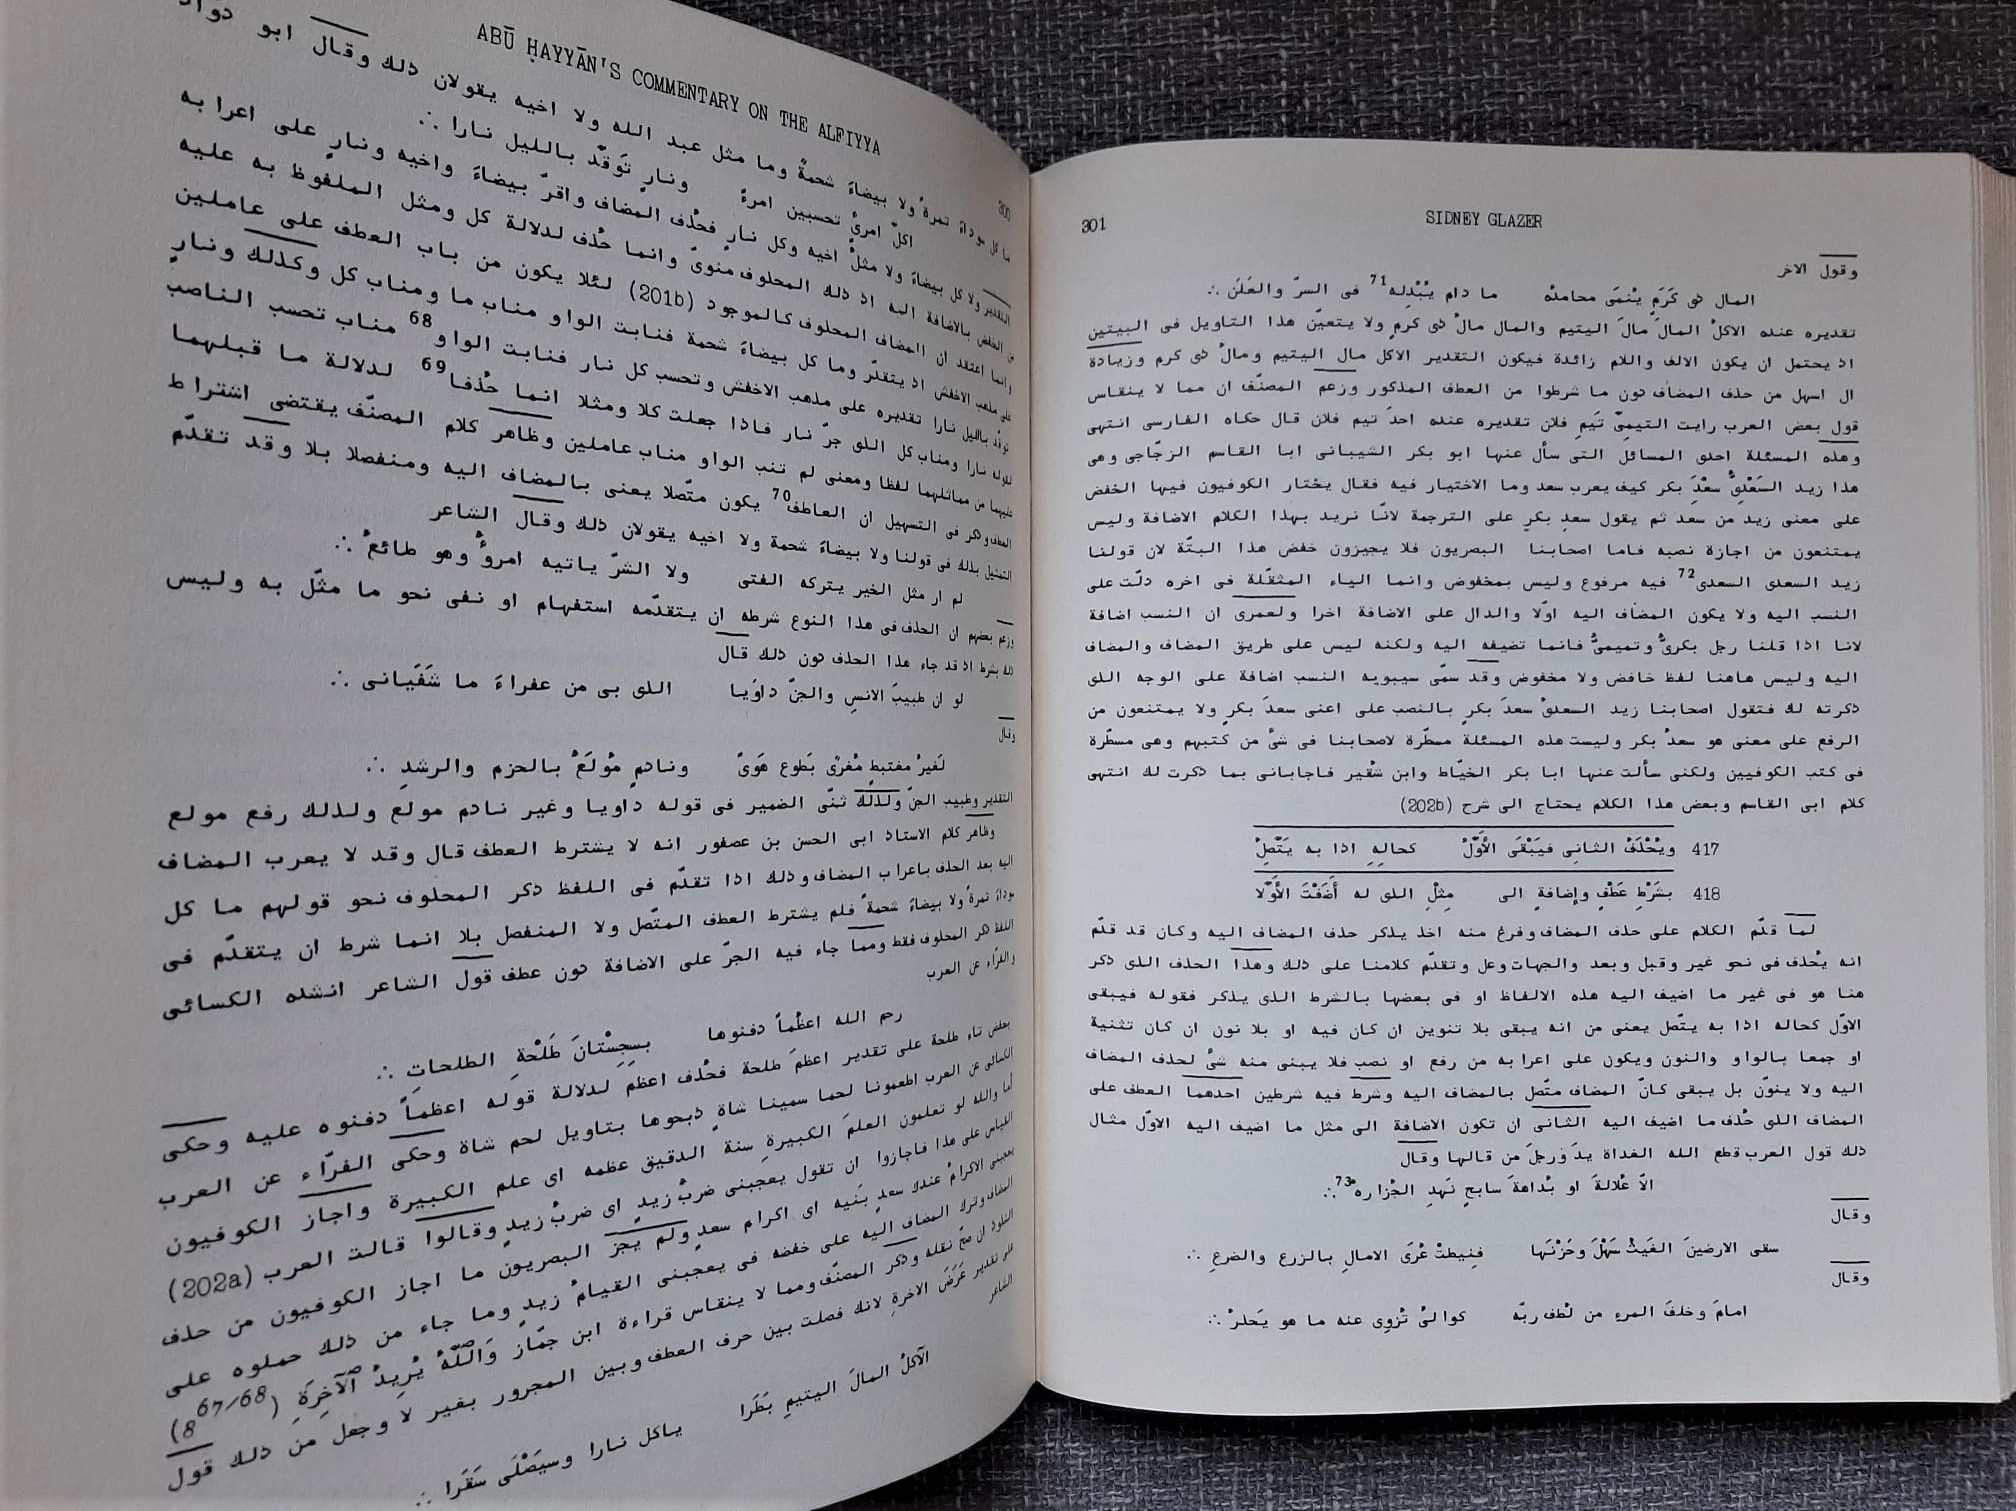 ABŪ ḤAYYĀN'S COMMENTARY ON THE ALFIYYA
300
ما كل سوداءَ تمرةً ولا بيضاءَ شحمةً وما مثل عبد الله ولا اخيه يقولان ذلك وقال ابو دؤاد
اكلَّ امرئٍ تحسبين امرءً ونارٍ تَوَقّد بالليل نارا ∴
التقدير ولا كل بيضاءَ ولا مثلُ اخيه وكل نارٍ فحُذف المضاف واقرّ بيضاءَ واخيه ونارٍ على اعرابه
من الخفض بالاضافة اليه اذ ذلك المحذوف منوىّ وانما حُذف لدلالة كل ومثل الملفوظ به عليه
وانما اعتقد ان المضاف المحذوف كالموجود (201b) لئلا يكون من باب العطف على عاملين
على مذهب الاخفش اذ يتقدّر وما كل بيضاءَ شحمة فنابت الواو مناب ما ومناب كل وكذلك ونارٍ
توقّد بالليل نارا تقديره على مذهب الاخفش وتحسب كل نار فنابت الواو68 مناب تحسب الناصب
لقوله نارا ومناب كل الذى جرّ نار فاذا جعلت كلا ومثلا انما حُذفا69 لدلالة ما قبلهما
عليهما من مماثلهما لفظا ومعنى لم تنب الواو مناب عاملين وظاهر كلام المصنّف يقتضى اشتراط
العطف وذكر فى التسهيل ان العاطف70 يكون متّصلا يعنى بالمضاف اليه ومنفصلا بلا وقد تقدّم
التمثيل بذلك فى قولنا ولا بيضاءَ شحمة ولا اخيه يقولان ذلك وقال الشاعر
لم ار مثل الخير يتركه الفتى ولا الشرّ ياتيه امروٌ وهو طائعُ ∴
وزعم بعضهم ان الحذف فى هذا النوع شرطه ان يتقدّمه استفهام او نفى نحو ما مثّل به وليس
ذلك بشرط اذ قد جاء هذا الحذف دون ذلك قال
لو ان طبيبَ الانسِ والجنّ داوَيا الذى بى من عفراءَ ما شَفَيانى ∴
وقال
لَغيرُ مغتبطٍ مُغرًى بَطوع هَوًى ونادمٍ مُولَعٌ بالحزم والرشدِ ∴
التقدير وطبيب الجنّ ولذلك ثنّى الضمير فى قوله داويا وغير نادم مولع ولذلك رفع مولع
وظاهر كلام الاستاذ ابى الحسن بن عصفور انه لا يشترط العطف قال وقد لا يعرب المضاف
اليه بعد الحذف باعراب المضاف وذلك اذا تقدّم فى اللفظ ذكر المحذوف نحو قولهم ما كل
سوداءَ تمرةً ولا بيضاءَ شحمةً فلم يشترط العطف المتّصل ولا المنفصل بلا انما شرط ان يتقدّم فى
اللفظ ذكر المحذوف فقط ومما جاء فيه الجرّ على الاضافة دون عطف قول الشاعر انشده الكسائى
والفرّاء عن العرب
رحم الله اعظُماً دفنوها بسِجِسْتانَ طَلْحةِ الطلحاتِ ∴
بخفض تاء طلحة على تقدير اعظمَ طلحة فحُذف اعظم لدلالة قوله اعظماً دفنوه عليه وحكى
الكسائى عن العرب اطعمونا لحما سمينا شاةٍ ذبحوها بتاويل لحم شاة وحكى الفرّاء عن العرب
أما والله لو تعلمون العلمَ الكبيرةِ سنة الدقيق عظمه اى علم الكبيرة واجاز الكوفيون
القياس على هذا فاجازوا ان تقول يعجبنى ضربُ زيدٍ اى ضربُ زيدٍ وقالوا قالت العرب (202a)
يعجبنى الاكرامُ عندك سعدٍ بَنيه اى اكرام سعدٍ ولم يجز البصريون ما اجاز الكوفيون من حذف
المضاف وترك المضاف اليه على خفضه فى يعجبنى القيامُ زيدٍ وما جاء من ذلك حملوه على
الشذوذ ان صحّ نقله وذكر المصنّف ومما لا ينقاس قراءة ابن جمّاز وَاللّٰهُ يُرِيدُ ٱلْآخِرَةِ (8 67/68)
على تقدير عَرَضَ الاخرةِ لانك فصلت بين حرف العطف وبين المجرور بغير لا وجعل من ذلك قول
الشاعر
الآكلُ المالَ اليتيمِ بَطَرا ياكل نارا وسيَصْلَى سَقَرا ∴
SIDNEY GLAZER
301
وقول الاخر
المال ذى كَرَمٍ يُنمَى محامدهُ ما دام يُبْدِله71 فى السرّ والعَلَن ∴
تقديره عنده الاكلُ المالَ مالَ اليتيم والمال مالُ ذى كرمٍ ولا يتعيّن هذا التاويل فى البيتين
اذ يحتمل ان يكون الالف واللام زائدة فيكون التقدير الاكل مال اليتيم ومالُ ذى كرم وزيادة
ال اسهل من حذف المضاف دون ما شرطوا من العطف المذكور وزعم المصنّف ان مما لا ينقاس
قول بعض العرب رايت التيمِىّ تَيمِ فلان تقديره عنده احدَ تيم فلان قال حكاه الفارسى انتهى
وهذه المسئلة احدى المسائل التى سأل عنها ابو بكر الشيبانى ابا القاسم الزجّاجى وهى
هذا زيد السَعْدِىُّ سعْدَِ بكر كيف يعرب سعد وما الاختيار فيه فقال يختار الكوفيون فيها الخفض
على معنى زيد من سعد ثم يقول سعدِ بكرٍ على الترجمة لانّا نريد بهذا الكلام الاضافة وليس
يمتنعون من اجازة نصبه فاما اصحابنا البصريون فلا يجيزون خفض هذا البتّة لان قولنا
زيد السعدى السعدى72 فيه مرفوع وليس بمخفوض وانما الياء المثقّلة فى اخره دلّت على
النسب اليه ولا يكون المضاف اليه اوّلا والدال على الاضافة اخرا ولعمرى ان النسب اضافة
لانا اذا قلنا رجل بكرىٌّ وتميمىٌّ فانما تضيفه اليه ولكنه ليس على طريق المضاف والمضاف
اليه وليس هاهنا لفظ خافض ولا مخفوض وقد سمّى سيبويه النسب اضافة على الوجه الذى
ذكرته لك فتقول اصحابنا زيد السعدىُّ سعدَ بكرٍ بالنصب على اعنى سعدَ بكرٍ ولا يمتنعون من
الرفع على معنى هو سعدُ بكر وليست هذه المسئلة مسطّرة لاصحابنا فى شئٍ من كتبهم وهى مسطّرة
فى كتب الكوفيين ولكنى سألت عنها ابا بكر الخيّاط وابن شُقير فاجابانى بما ذكرت لك انتهى
كلام ابى القاسم وبعض هذا الكلام يحتاج الى شرح (202b)
417 ويُحْذَفُ الثانِى فيَبْقَى الأَوَّلُ كحالِهِ اذا به يَتَّصِلُ
418 بشَرْطِ عَطْفٍ وإضافةٍ الى مِثْلِ الذى له أَضَفْتَ الأَوَّلا
لما قدّم الكلام على حذف المضاف وفرغ منه اخذ يذكر حذف المضاف اليه وكان قد قدّم
انه يُحذف فى نحو غير وقبل وبعد والجهات وعل وتقدّم كلامنا على ذلك وهذا الحذف الذى ذكر
هنا هو فى غير ما اضيف اليه هذه الالفاظ او فى بعضها بالشرط الذى يذكر فقوله فيبقى
الاوّل كحاله اذا به يتّصل يعنى من انه يبقى بلا تنوين ان كان فيه او بلا نون ان كان تثنية
او جمعا بالواو والنون ويكون على اعرابه من رفع او نصب فلا يبنى منه شئٌ لحذف المضاف
اليه ولا ينوّن بل يبقى كانّ المضاف متّصل بالمضاف اليه وشرط فيه شرطين احدهما العطف على
المضاف الذى حُذف ما اضيف اليه الثانى ان تكون الاضافة الى مثل ما اضيف اليه الاوّل مثال
ذلك قول العرب قطع الله الغداة يدَ ورجلَ من قالها وقال
الاّ عُلالةَ او بُداهةَ سابحٍ نَهدِ الجُزاره73 ∴
وقال
سقى الارضينَ الغَيثُ سَهْلَ وحَزْنَها فنِيطتْ عُرَى الامالِ بالزرع والضرعِ ∴
وقال
امامَ وخلفَ المرءِ من لُطف ربّه كوالئُ تُزوِى عنه ما هو يَحذرُ ∴